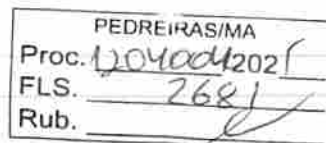 PEDREIRAS/MA
Proc. 1204004/2021
FLS. 2681
Rub.